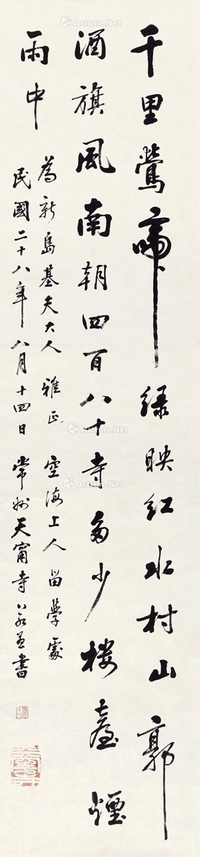 千里鶯啼綠映紅水村山郭
酒旗風南朝四百八十寺多少樓臺煙
雨中
為新島基夫大人雅正 空海上人留學處
民國二十八年八月十四日常州天甯寺